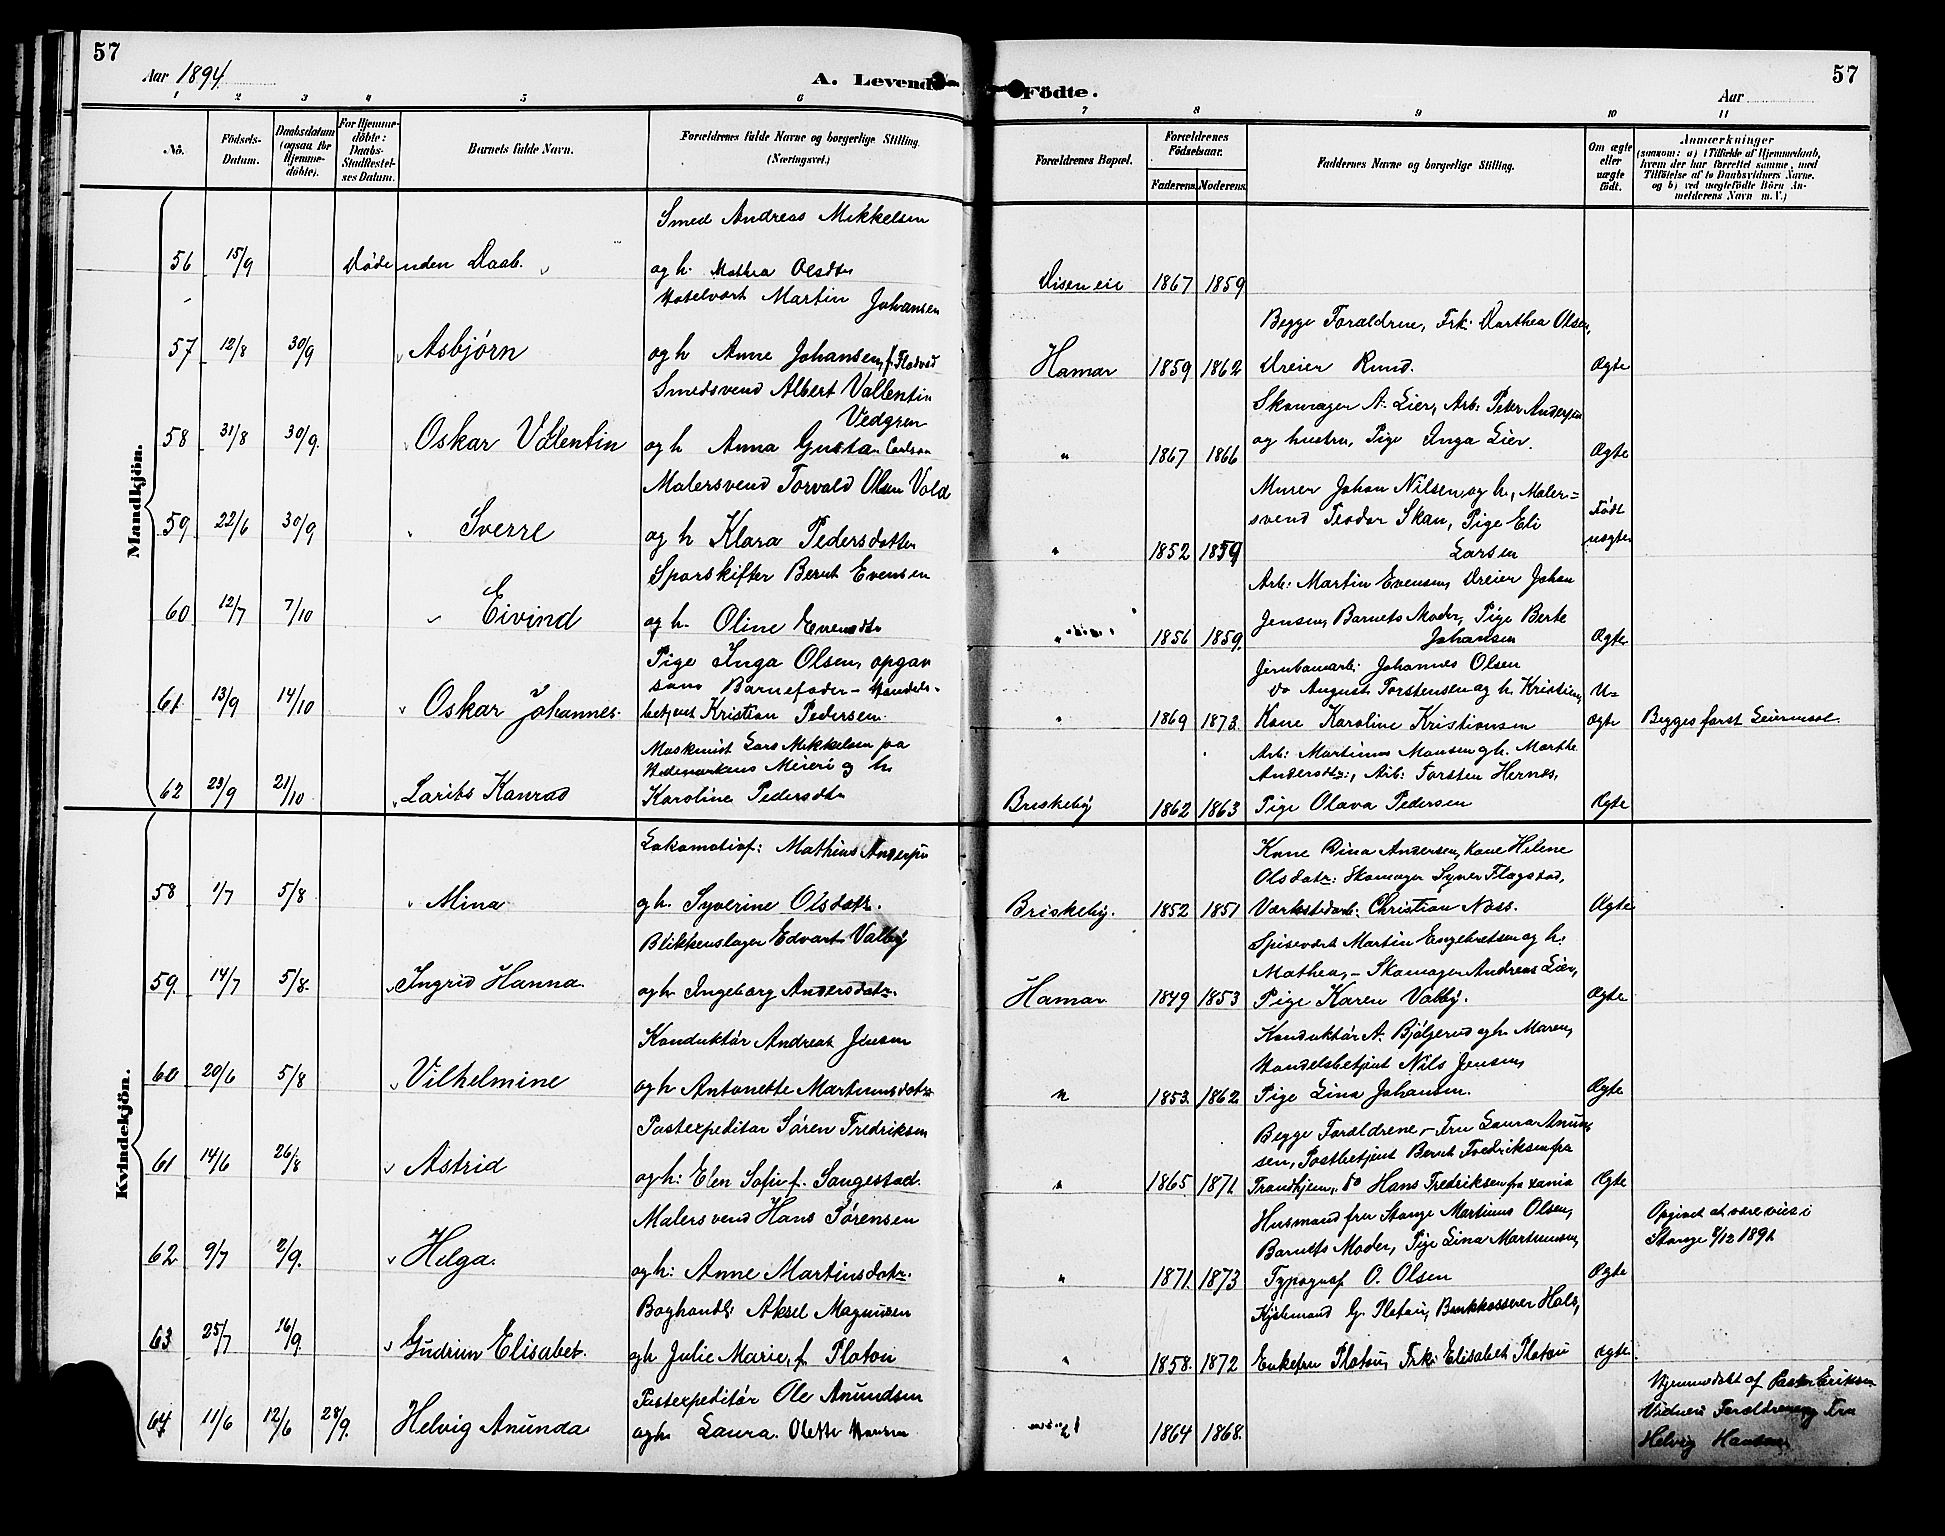 57
Aar 1894.
A. Levende
Födte.
57
Aar
1 2 3 4 5 6 7 8 9 10 11
No. Födsels-Datum. Daabsdatum (ogsaa for Hjemme-döbte). For Hjemme-döbte: Daabs-Stadfæstel-ses Datum. Barnets fulde Navn. Forældrenes fulde Navne og borgerlige Stilling. (Næringsvei.) Forældrenes Bopæl. Forældrenes Födselsaar. Faderens. Moderens. Faddernes Navne og borgerlige Stilling. Om ægte eller uægte födt. Anmærkninger (saasom: a) i Tilfælde af Hjemmedaab, hvem der har forrettet samme, med Tilföielse af to Daabsvidners Navne. og b) ved uægtefödte Börn An-melderens Navn m. V.)
Mandkjön.
Smed Andreas Mikkelsen
56 15/9 Døde uden Daab. og h. Mathea Olsdtr Disen eie 1867 1859
Hotelvært Martin Johansen
Begge Forældrene, Frk. Dorthea Olsen,
57 12/8 30/9 Asbjørn og h Anne Johansen, f. Flodvad Hamar 1859 1862 Dreier Rund. Ægte
Smedsvend Albert Vallentin Vedgren
Skomager A. Lier, Arb: Peter Andersen
58 31/8 30/9. Oskar Vallentin og h Anna Gustava Carlson " 1867 1866 og hustru, Pige Inga Lier. Ægte
Malersvend Torvald Olsen Vold
Murer Johan Nilsen og h., Maler=
59. 22/6 30/9 Sverre og h Klara Pedersdatter " 1852 1859 svend Teodor Skau, Pige Eli Larsen Født uægte
Sporskifter Bernt Evensen
Arb: Martin Evensen, Dreier Johan
60 12/7 7/10 Eivind og h. Oline Evensdtr " 1856 1859. Jensen, Barnets Moder, Pige Berte Johansen Ægte
Pige Inga Olsen, opgav
som Barnefader - Handels-
Jernbanearb: Johannes Olsen
do August Torstensen og h. Kristine,
61. 13/9 14/10 Oskar Johannes. betjent Kristian Pedersen. " 1869 1873. Kone Karoline Kristiansen U=ægte Begges først Leiermaal.
Maskinist Lars Mikkelsen paa
Hedemarkens Meieri og h.
Arb: Martinus Monsen og h. Marthe
Andersdtr:, Arb: Torsten Hernes,
62 23/9 21/10 Laurits Konrad Karoline Pedersdtr Briskeby 1862 1863 Pige Olava Pedersen Ægte
Kvindekjön.
Lokomotivf: Mathias Andersen
Kone Dina Andersen, Kone Helene
Olsdatr: Skomager Syver Flagstad,
58 1/7 5/8 Mina og h. Syverine Olsdatr. Briskeby. 1852 1851 Værkstedarb: Christian Næss. Ægte
Blikkenslager Edvart Valby
Spisevært Martin Engebretsen og h.
Mathea, - Skomager Andreas Lier,
59. 14/7 5/8. Ingrid Hanna. og h. Ingeborg Andersdatr. Hamar 1849 1853 Pige Karen Valby. Ægte
Konduktør Andreas Jensen
Konduktør A. Bjølgerud og h. Maren,
Handelsbetjent Nils Jensen,
60 20/6 5/8 Vilhelmine og h Antonette Martinusdatr " 1853. 1862 Pige Lina Johansen. Ægte
Postexpeditør Søren Fredriksen
Begge Forældrene - Fru Laura Anund-
sen, Postbetjent Bernt Fredriksen fra
61 14/6 26/8 Astrid og h: Elen Sofie f. Sangestad. " 1865. 1871. Trondhjem, do Hans Fredriksen fra xania Ægte
Malersvend Hans Sørensen
Husmand fra Stange Martinus Olsen,
Barnets Moder, Pige Lina Martinusen,
Opgivet at være viet i
Stange 8/12 1891.
62 9/7 2/9. Helga. og h: Anne Martinsdatr. " 1871. 1873 Typograf O. Olsen Ægte
Boghandl: Aksel Magnusen
Kjøbmand G. Platou, Bankkasserer Hals,
63 25/7 16/9. Gudrun Elisabet. og h Julie Marie, f. Platou " 1858. 1872 Enkefru Platou, Frk: Elisabeth Platou ægte
Postexpeditør Ole Anundsen
64 11/6 12/6 28/9. Helvig Anunda og h Laura Olette Hansen 1864 1868.
Hjemmedøbt af Pastor Eriksen
Vidner: Forældrene og Fru
Helvig Hansen.